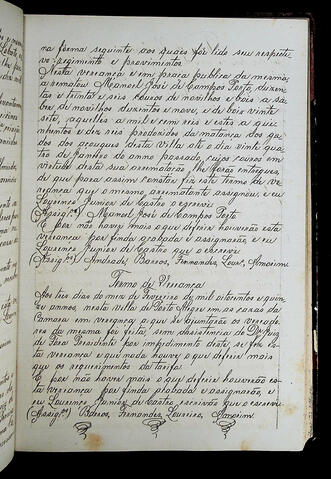 na forma seguinte aos quaes foi lido seu respecti-
vo regimento e provimentos
Nesta vereança e em praça publica da mesma,
arrematou Manoel José de Campos Porto, duzen-
tas e trinta e seis couros de novilhos e bois a sa-
ber de novilhos duzentos e nove, e de bois vinte
sete, aquelles a mil e cem reis e estes a qui-
nhentos e dez reis produzidos da matança dos ga-
dos dos açougues desta villa até o dia vinte qua-
tro de Janeiro do anno passado, cujos couros em
virtude desta sua arrematação lhe serão entregues,
de que para assim constar, fiz este termo de ve-
reança que o mesmo arrematante assignou, e eu
Lourenço Junior de Castro o escrevi
(Assig.os) Manoel José de Campos Porto
E por não haver mais o que deferir houverão esta
vereança por finda e assignarão, e eu
Lourenço Junior de Castro que o escrevi
(Assig.os) Andrade, Barros, Fernandes, Lour.o, Amorim.
Termo de Vereança
Aos tres dias do mez de Fevereiro de mil oitocentos e quin-
ze annos, nesta villa de Porto Alegre em as casas da
Camara em vereança a que se ajuntarão os vereado-
res da mesma foi feita, sem a assistencia do Dr. Juiz
de Fora Presidente por impedimento deste, se fez es-
ta vereança e que nada houve o que deferir mais
que os requerimentos da tarifa.
E por não haver mais o que deferir houverão es-
ta vereança por finda e assignarão, e
eu Lourenço Junior de Castro, escrivão que o escrevi
(Assig.os) Barros, Fernandes, Loureiro, Amorim.